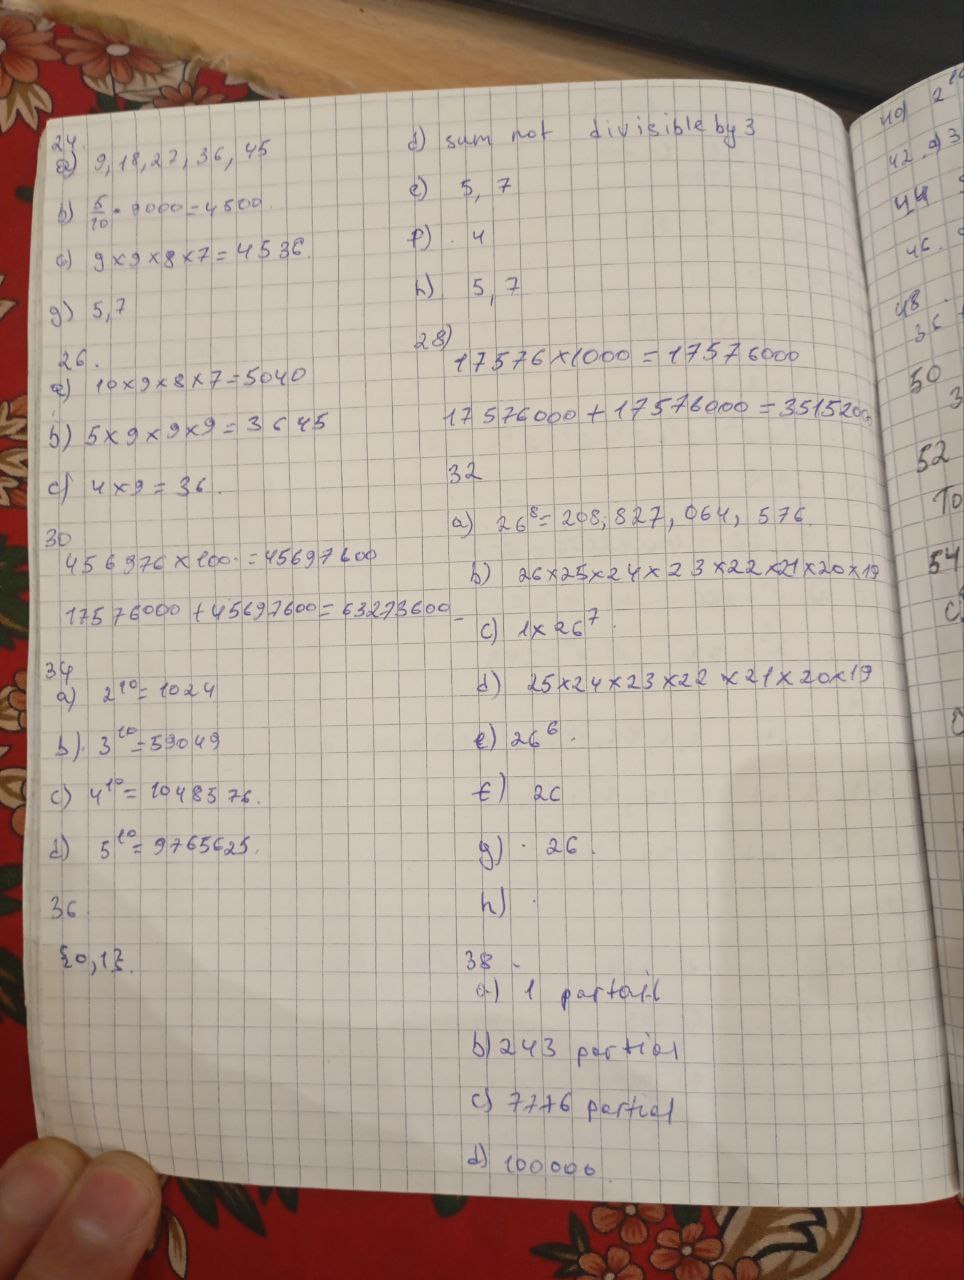 24.
a) 9, 18, 27, 36, 45
b) 5/10 · 9000 = 4500.
c) 9 × 9 × 8 × 7 = 4536.
g) 5, 7
26.
a) 10 × 9 × 8 × 7 = 5040
b) 5 × 9 × 9 × 9 = 3645
c) 4 × 9 = 36.
30
456976 × 100 = 45697600
17576000 + 45697600 = 63273600
34
a) 2^10 = 1024
b) 3^10 = 59049
c) 4^10 = 1048576.
d) 5^10 = 9765625.
36.
{0, 1}.
d) sum not divisible by 3
e) 5, 7
f) 4
h) 5, 7
28)
17576 × 1000 = 17576000
17576000 + 17576000 = 35152000
32
a) 26^8 = 208, 827, 064, 576.
b) 26×25×24×23×22×21×20×19
c) 1 × 26^7.
d) 25×24×23×22×21×20×19
e) 26^6.
f) 26
g) 26.
h)
38
a) 1
b) 243 partial
c) 7776 partial
d) 100000
40)
42. a) 3
44
46.
48.
36
50
3
52
To
54